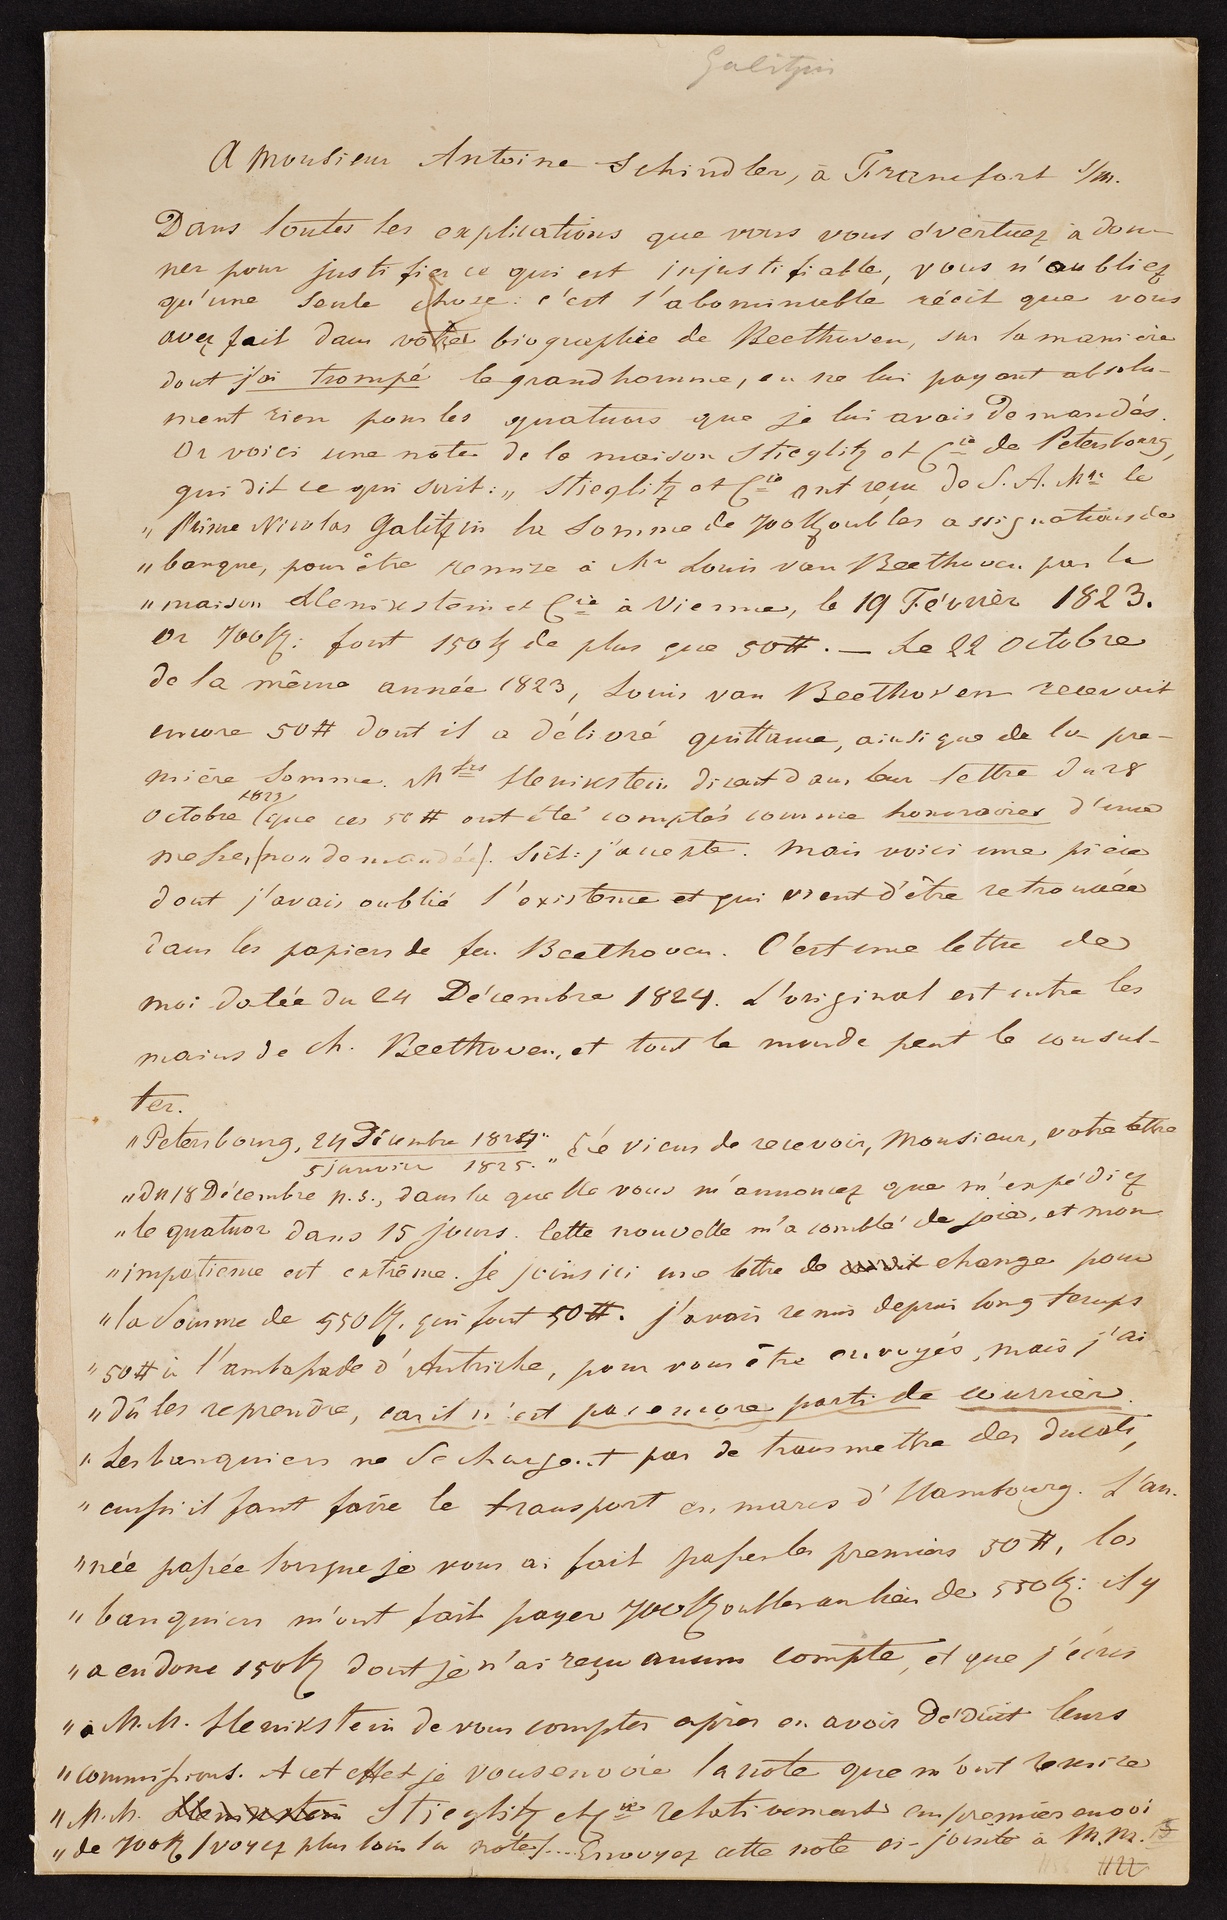 Galitzin
A Monsieur Antoine Schindler, à Francfort s/m.
Dans toutes les explications que vous vous évertuez à don-
ner pour justifier ce qui est injustifiable, vous n'oubliez
qu'une seule chose: c'est l'abominable récit que vous
avez fait dans votre biographie de Beethoven, sur la manière
dont j'ai trompé le grand homme, en ne lui payant absolu-
ment rien pour les quatuors que je lui avais demandés.
Or voici une note de la maison Stieglitz et Cie de Petersbourg,
qui dit ce qui suit: „ Stieglitz et Cie ont reçu de S. A. Mr le
„ Prince Nicolas Galitzin la somme de 700 Roubles assignations de
„ banque, pour être remise à Mr Louis van Beethoven par la
„ maison Henikstein et Cie à Vienne, le 19 Février 1823.
Or 700 R: font 150 R de plus que 50 #. — Le 22 Octobre
de la même année 1823, Louis van Beethoven recevait
encore 50 # dont il a délivré quittance, ainsi que de la pre-
mière somme. Mrs Henikstein disent dans leur lettre du 28
Octobre 1823 (que ces 50 # ont été comptés comme honoraires d'une
messe, (non demandée). Soit: j'accepte. Mais voici une pièce
dont j'avais oublié l'existence et qui vient d'être retrouvée
dans les papiers de feu Beethoven. C'est une lettre de
moi datée du 24 Décembre 1824. L'original est entre les
mains de Ch. Beethoven, et tout le monde peut le consul-
ter.
„ Petersbourg, 24 Décembre 1824 / 5 janvier 1825. „ Je viens de recevoir, Monsieur, votre lettre
„ du 18 Décembre n. s., dans la quelle vous m'annoncez que m'expédiez
„ le quatuor dans 15 jours. Cette nouvelle m'a comblé de joie, et mon
„ impatience est extrême. Je joins ici une lettre de change pour
„ la somme de 550 R. qui font 50 #. J'avais remis depuis long temps
„ 50 # à l'ambassade d'Autriche, pour vous être envoyés, mais j'ai
„ dû les reprendre, car il n'est pas encore parti de courrier.
„ Les banquiers ne se chargent pas de transmettre des ducats,
„ aussi il faut faire le transport en marcs d'Hambourg. L'an-
„ née passée lorsque je vous ai fait passer les premiers 50 #, les
„ banquiers m'ont fait payer 700 Roubles au lieu de 550 R: il y
„ a eu donc 150 R dont je n'ai reçu aucun compte, et que j'écris
„ à M.M. Henikstein de vous compter après en avoir déduit leurs
„ commissions. A cet effet je vous envoie la note que m'ont remise
„ M.M. Henikstein Stieglitz et Cie relativement au premier envoi
„ de 700 R (voyez plus loin la note).... Envoyez cette note ci-jointe à M.M.